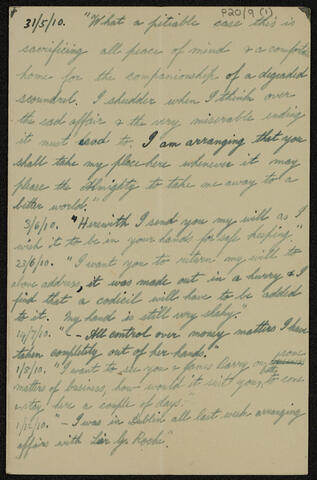 P20/9 (1)
31/5/10. "What a pitiable case this is
sacrificing all peace of mind & a comfortable
home for the companionship of a degraded
scoundrel. I shudder when I think over
the sad affair & the very miserable ending
it must lead to. I am arranging that you
shall take my place here whenever it may
please the Almighty to take me away to a
better world."
3/6/10. "Herewith I send you my will as I
wish it to be in your hands for safe keeping"
23/6/10. "I want you to return my will to
above address, it was made out in a hurry & I
find that a codicil will have to be added
to it. My hand is still very shaky."
14/7/10. "- All control over money matters I have
taken completely out of her hands."
1/8/10. "I want to see you & James Barry on some
matters of business, how would it suit you, to come
& stay here a couple of days."
1/11/10. "- I was in Dublin all last week arranging
affairs with Sir Ge. Roche".